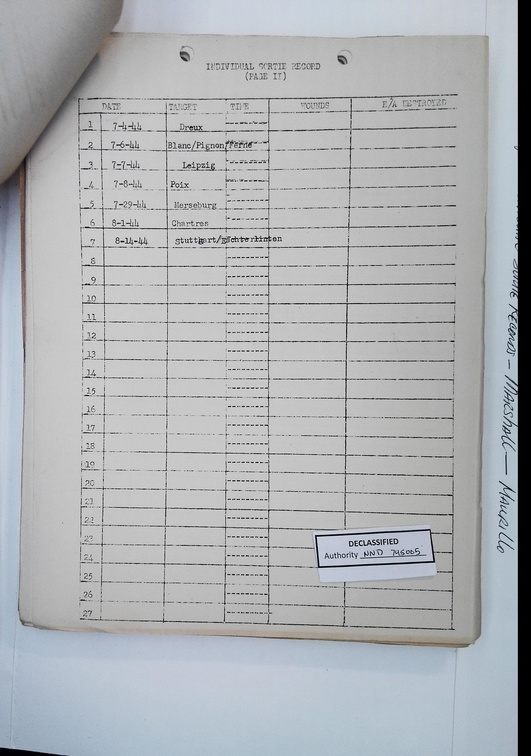 INDIVIDUAL SORTIE RECORD
(PAGE II)
DATE TARGET TIME WOUNDS E/A DESTROYED
1 7-4-44 Dreux
2 7-6-44 Blanc/Pignon/Ferne
3 7-7-44 Leipzig
4 7-8-44 Poix
5 7-29-44 Merseburg
6 8-1-44 Chartres
7 8-14-44 stuttgart/Echterlinten
8
9
10
11
12
13
14
15
16
17
18
19
20
21
22
23
24
25
26
27
DECLASSIFIED
Authority NND 745005
Records - Marshall - Maurillo